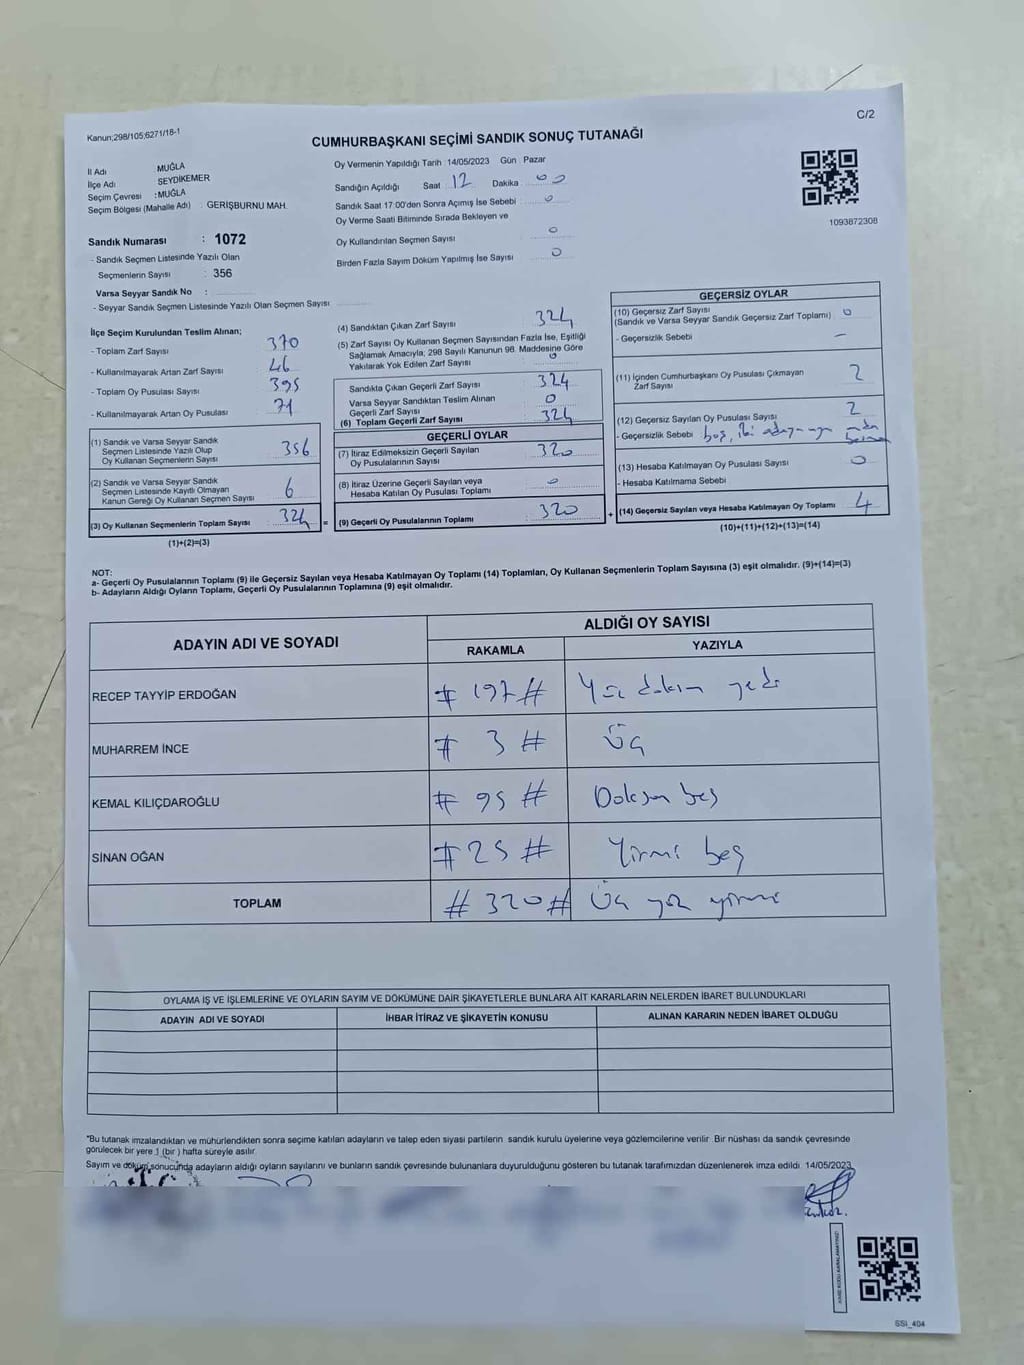 Kanun;298/105;6271/18-1
C/2
CUMHURBAŞKANI SEÇİMİ SANDIK SONUÇ TUTANAĞI
İl Adı MUĞLA
İlçe Adı SEYDİKEMER
Seçim Çevresi : MUĞLA
Seçim Bölgesi (Mahalle Adı) : GERİŞBURNU MAH.
Sandık Numarası : 1072
- Sandık Seçmen Listesinde Yazılı Olan
Seçmenlerin Sayısı : 356
Varsa Seyyar Sandık No :
- Seyyar Sandık Seçmen Listesinde Yazılı Olan Seçmen Sayısı
Oy Vermenin Yapıldığı Tarih 14/05/2023 Gün Pazar
Sandığın Açıldığı Saat 12 Dakika 00
Sandık Saat 17:00'den Sonra Açımış İse Sebebi 0
Oy Verme Saati Bitiminde Sırada Bekleyen ve
Oy Kullandırılan Seçmen Sayısı 0
Birden Fazla Sayım Döküm Yapılmış İse Sayısı 0
1093872308
İlçe Seçim Kurulundan Teslim Alınan;
- Toplam Zarf Sayısı 370
- Kullanılmayarak Artan Zarf Sayısı 46
- Toplam Oy Pusulası Sayısı 395
- Kullanılmayarak Artan Oy Pusulası 71
(1) Sandık ve Varsa Seyyar Sandık
Seçmen Listesinde Yazılı Olup
Oy Kullanan Seçmenlerin Sayısı 356
(2) Sandık ve Varsa Seyyar Sandık
Seçmen Listesinde Kayıtlı Olmayan
Kanun Gereği Oy Kullanan Seçmen Sayısı 6
(3) Oy Kullanan Seçmenlerin Toplam Sayısı 324 =
(1)+(2)=(3)
(4) Sandıktan Çıkan Zarf Sayısı 324
(5) Zarf Sayısı Oy Kullanan Seçmen Sayısından Fazla İse, Eşitliği
Sağlamak Amacıyla; 298 Sayılı Kanunun 98. Maddesine Göre
Yakılarak Yok Edilen Zarf Sayısı 0
Sandıkta Çıkan Geçerli Zarf Sayısı 324
Varsa Seyyar Sandıktan Teslim Alınan
Geçerli Zarf Sayısı 0
(6) Toplam Geçerli Zarf Sayısı 324
GEÇERLİ OYLAR
(7) İtiraz Edilmeksizin Geçerli Sayılan
Oy Pusulalarının Sayısı 320
(8) İtiraz Üzerine Geçerli Sayılan veya
Hesaba Katılan Oy Pusulası Toplamı 0
(9) Geçerli Oy Pusulalarının Toplamı 320 +
GEÇERSİZ OYLAR
(10) Geçersiz Zarf Sayısı
(Sandık ve Varsa Seyyar Sandık Geçersiz Zarf Toplamı) 0
- Geçersizlik Sebebi –
(11) İçinden Cumhurbaşkanı Oy Pusulası Çıkmayan
Zarf Sayısı 2
(12) Geçersiz Sayılan Oy Pusulası Sayısı 2
- Geçersizlik Sebebi boş, iki adaya
(13) Hesaba Katılmayan Oy Pusulası Sayısı 0
- Hesaba Katılmama Sebebi
(14) Geçersiz Sayılan veya Hesaba Katılmayan Oy Toplamı 4
(10)+(11)+(12)+(13)=(14)
NOT:
a- Geçerli Oy Pusulalarının Toplamı (9) ile Geçersiz Sayılan veya Hesaba Katılmayan Oy Toplamı (14) Toplamları, Oy Kullanan Seçmenlerin Toplam Sayısına (3) eşit olmalıdır. (9)+(14)=(3)
b- Adayların Aldığı Oyların Toplamı, Geçerli Oy Pusulalarının Toplamına (9) eşit olmalıdır.
ADAYIN ADI VE SOYADI ALDIĞI OY SAYISI
RAKAMLA YAZIYLA
RECEP TAYYİP ERDOĞAN # 197 # Yüz doksan yedi
MUHARREM İNCE # 3 # Üç
KEMAL KILIÇDAROĞLU # 95 # Doksan beş
SİNAN OĞAN # 25 # Yirmi beş
TOPLAM # 320 # Üç yüz yirmi
OYLAMA İŞ VE İŞLEMLERİNE VE OYLARIN SAYIM VE DÖKÜMÜNE DAİR ŞİKAYETLERLE BUNLARA AİT KARARLARIN NELERDEN İBARET BULUNDUKLARI
ADAYIN ADI VE SOYADI İHBAR İTİRAZ VE ŞİKAYETİN KONUSU ALINAN KARARIN NEDEN İBARET OLDUĞU
*Bu tutanak imzalandıktan ve mühürlendikten sonra seçime katılan adayların ve talep eden siyasi partilerin sandık kurulu üyelerine veya gözlemcilerine verilir. Bir nüshası da sandık çevresinde
görülecek bir yere 1 (bir) hafta süreyle asılır.
Sayım ve döküm sonucunda adayların aldığı oyların sayılarını ve bunların sandık çevresinde bulunanlara duyurulduğunu gösteren bu tutanak tarafımızdan düzenlenerek imza edildi. 14/05/2023
SSI_404